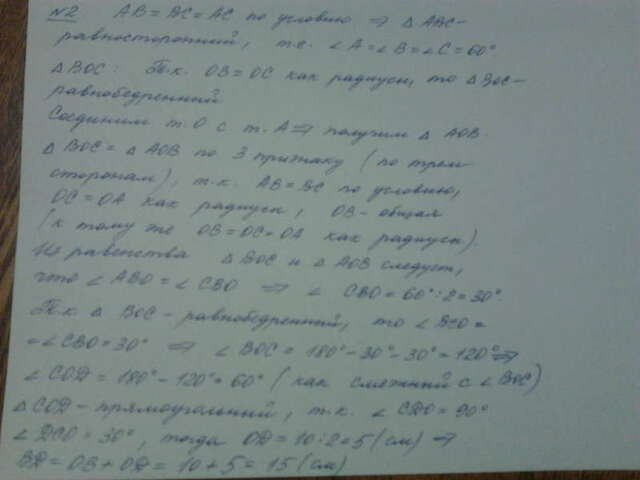 №2 AB = BC = AC по условию ⇒ △ABC-
равносторонний, т.е. ∠A = ∠B = ∠C = 60°
△BOC: Т.к. OB = OC как радиусы, то △BOC-
равнобедренный
Соединим т.O с т.A ⇒ получим △AOB.
△BOC = △AOB по 3 признаку (по трем
сторонам), т.к. AB = BC по условию,
OC = OA как радиусы, OB - общая
(к тому же OB = OC = OA как радиусы).
Из равенства △BOC и △AOB следует,
что ∠ABO = ∠CBO ⇒ ∠CBO = 60° : 2 = 30°.
Т.к. △BOC - равнобедренный, то ∠BCO =
= ∠CBO = 30° ⇒ ∠BOC = 180° - 30° - 30° = 120° ⇒
∠COD = 180° - 120° = 60° (как смежный с ∠BOC)
△COD - прямоугольный, т.к. ∠CDO = 90°
∠DCO = 30°, тогда OD = 10 : 2 = 5 (см) ⇒
BD = OB + OD = 10 + 5 = 15 (см)